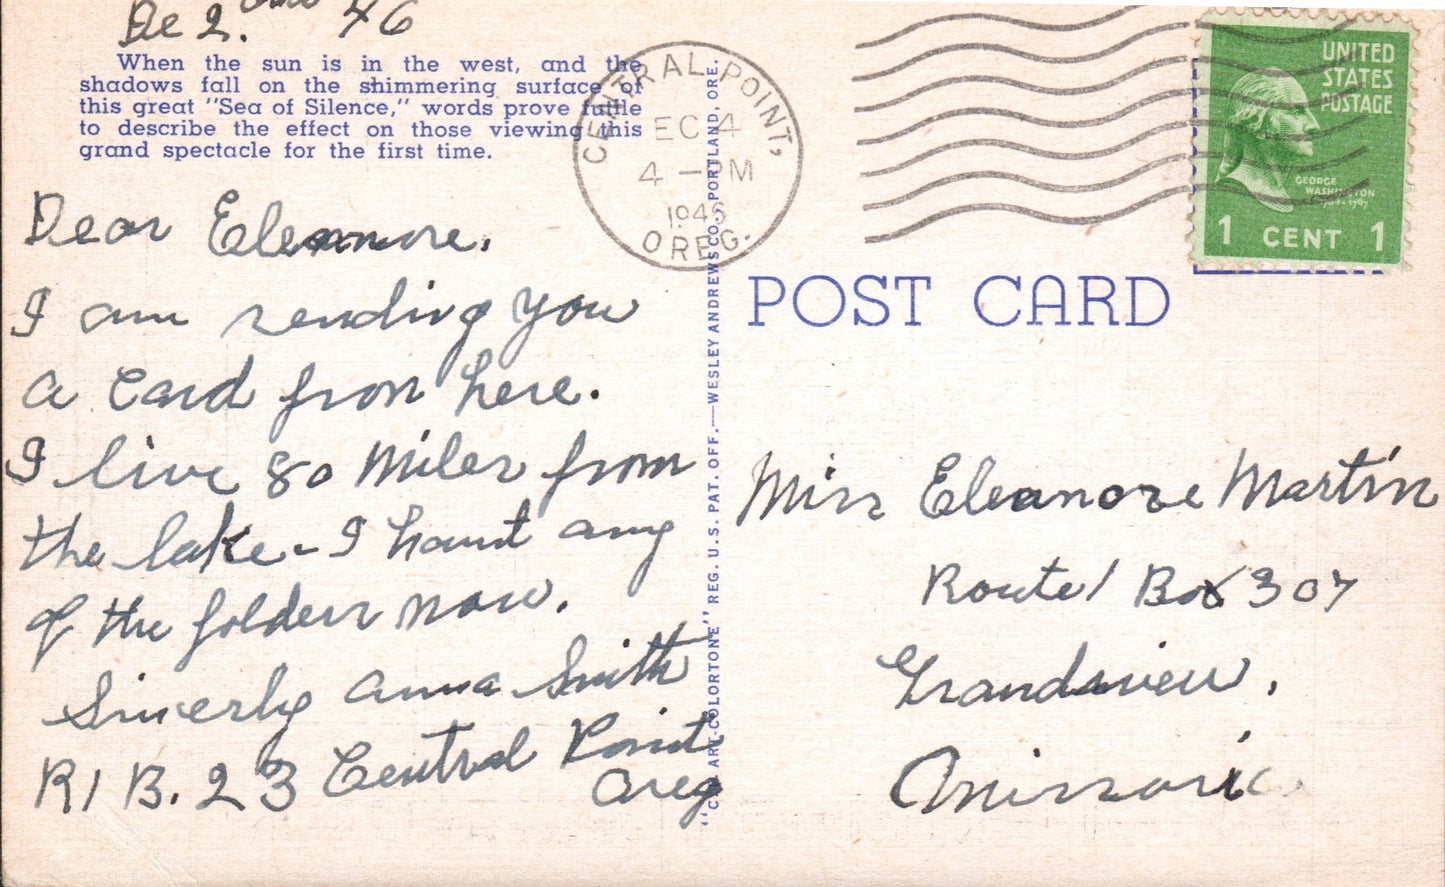 De 2. 46
When the sun is in the west, and the
shadows fall on the shimmering surface of
this great "Sea of Silence," words prove futile
to describe the effect on those viewing this
grand spectacle for the first time.
Dear Eleanore.
I am sending you
a card from here.
I live 80 miles from
the lake - I havnt any
of the folders now.
Sincerly Anna Smith
R1 B. 23 Central Point
Oreg
"C.T. ART-COLORTONE" REG. U.S. PAT. OFF.—WESLEY ANDREWS CO., PORTLAND, ORE.
CENTRAL POINT,
EC 4
4 - PM
1946
OREG.
UNITED
STATES
POSTAGE
GEORGE
WASHINGTON
1 CENT 1
POST CARD
Miss Eleanore Martin
Route 1 Box 307
Grandview.
Missouri